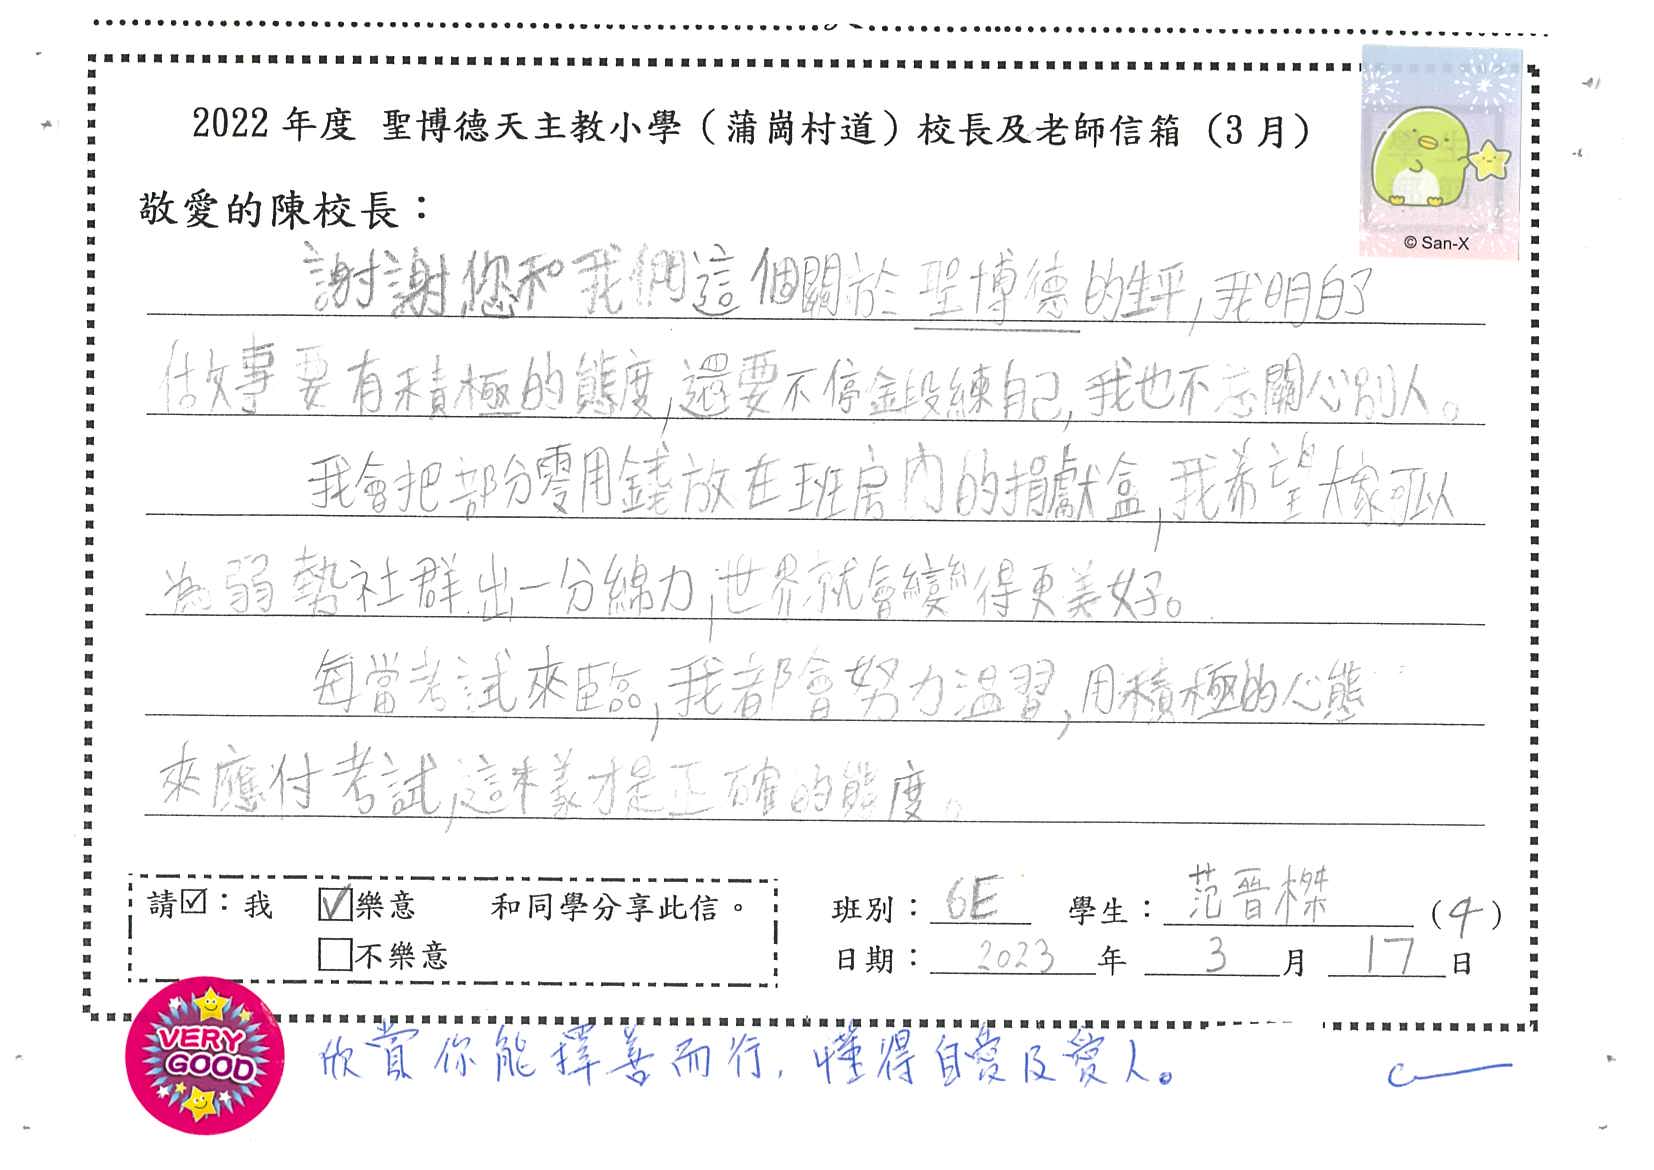 2022 年度 聖博德天主教小學（蒲崗村道）校長及老師信箱（3 月）
© San-X
敬愛的陳校長：
謝謝您和我們這個關於聖博德的生平，我明白了
做事要有積極的態度，還要不停鍛練自己，我也不忘關心別人。
我會把部分零用錢放在班房內的捐獻盒，我希望大家可以
為弱勢社群出一分綿力，世界就會變得更美好。
每當考試來臨，我都會努力温習，用積極的心態
來應付考試，這樣才是正確的態度。
請☑：我 ☑樂意 和同學分享此信。
□不樂意
班別：6E 學生：范晉榤 （4）
日期：2023年 3月 17日
VERY GOOD
欣賞你能擇善而行，懂得自愛及愛人。